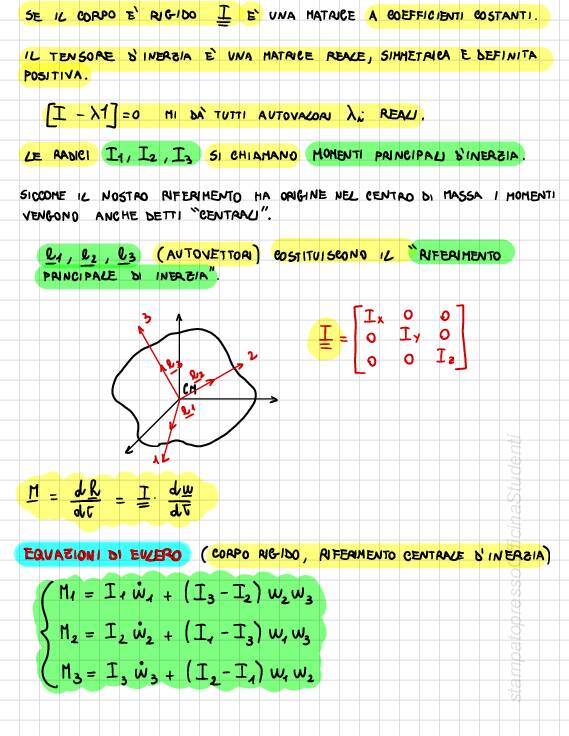 SE IL CORPO E' RIGIDO I E' UNA MATRICE A COEFFICIENTI COSTANTI.
IL TENSORE D'INERZIA E' UNA MATRICE REALE, SIMMETRICA E DEFINITA
POSITIVA.
[I - λ1] = 0 MI DA' TUTTI AUTOVALORI λi REALI.
LE RADICI I1, I2, I3 SI CHIAMANO MOMENTI PRINCIPALI D'INERZIA.
SICCOME IL NOSTRO RIFERIMENTO HA ORIGINE NEL CENTRO DI MASSA I MOMENTI
VENGONO ANCHE DETTI "CENTRALI".
e1, e2, e3 (AUTOVETTORI) COSTITUISCONO IL "RIFERIMENTO
PRINCIPALE DI INERZIA".
3
e3
e2
2
CM
e1
1
I = [Ix 0 0
0 Iy 0
0 0 Iz]
M = dh/dt = I · dw/dt
EQUAZIONI DI EULERO (CORPO RIGIDO, RIFERIMENTO CENTRALE D'INERZIA)
M1 = I1 ẇ1 + (I3 - I2) w2 w3
M2 = I2 ẇ2 + (I1 - I3) w1 w3
M3 = I3 ẇ3 + (I2 - I1) w1 w2
stampatopressoOfficinaStudenti